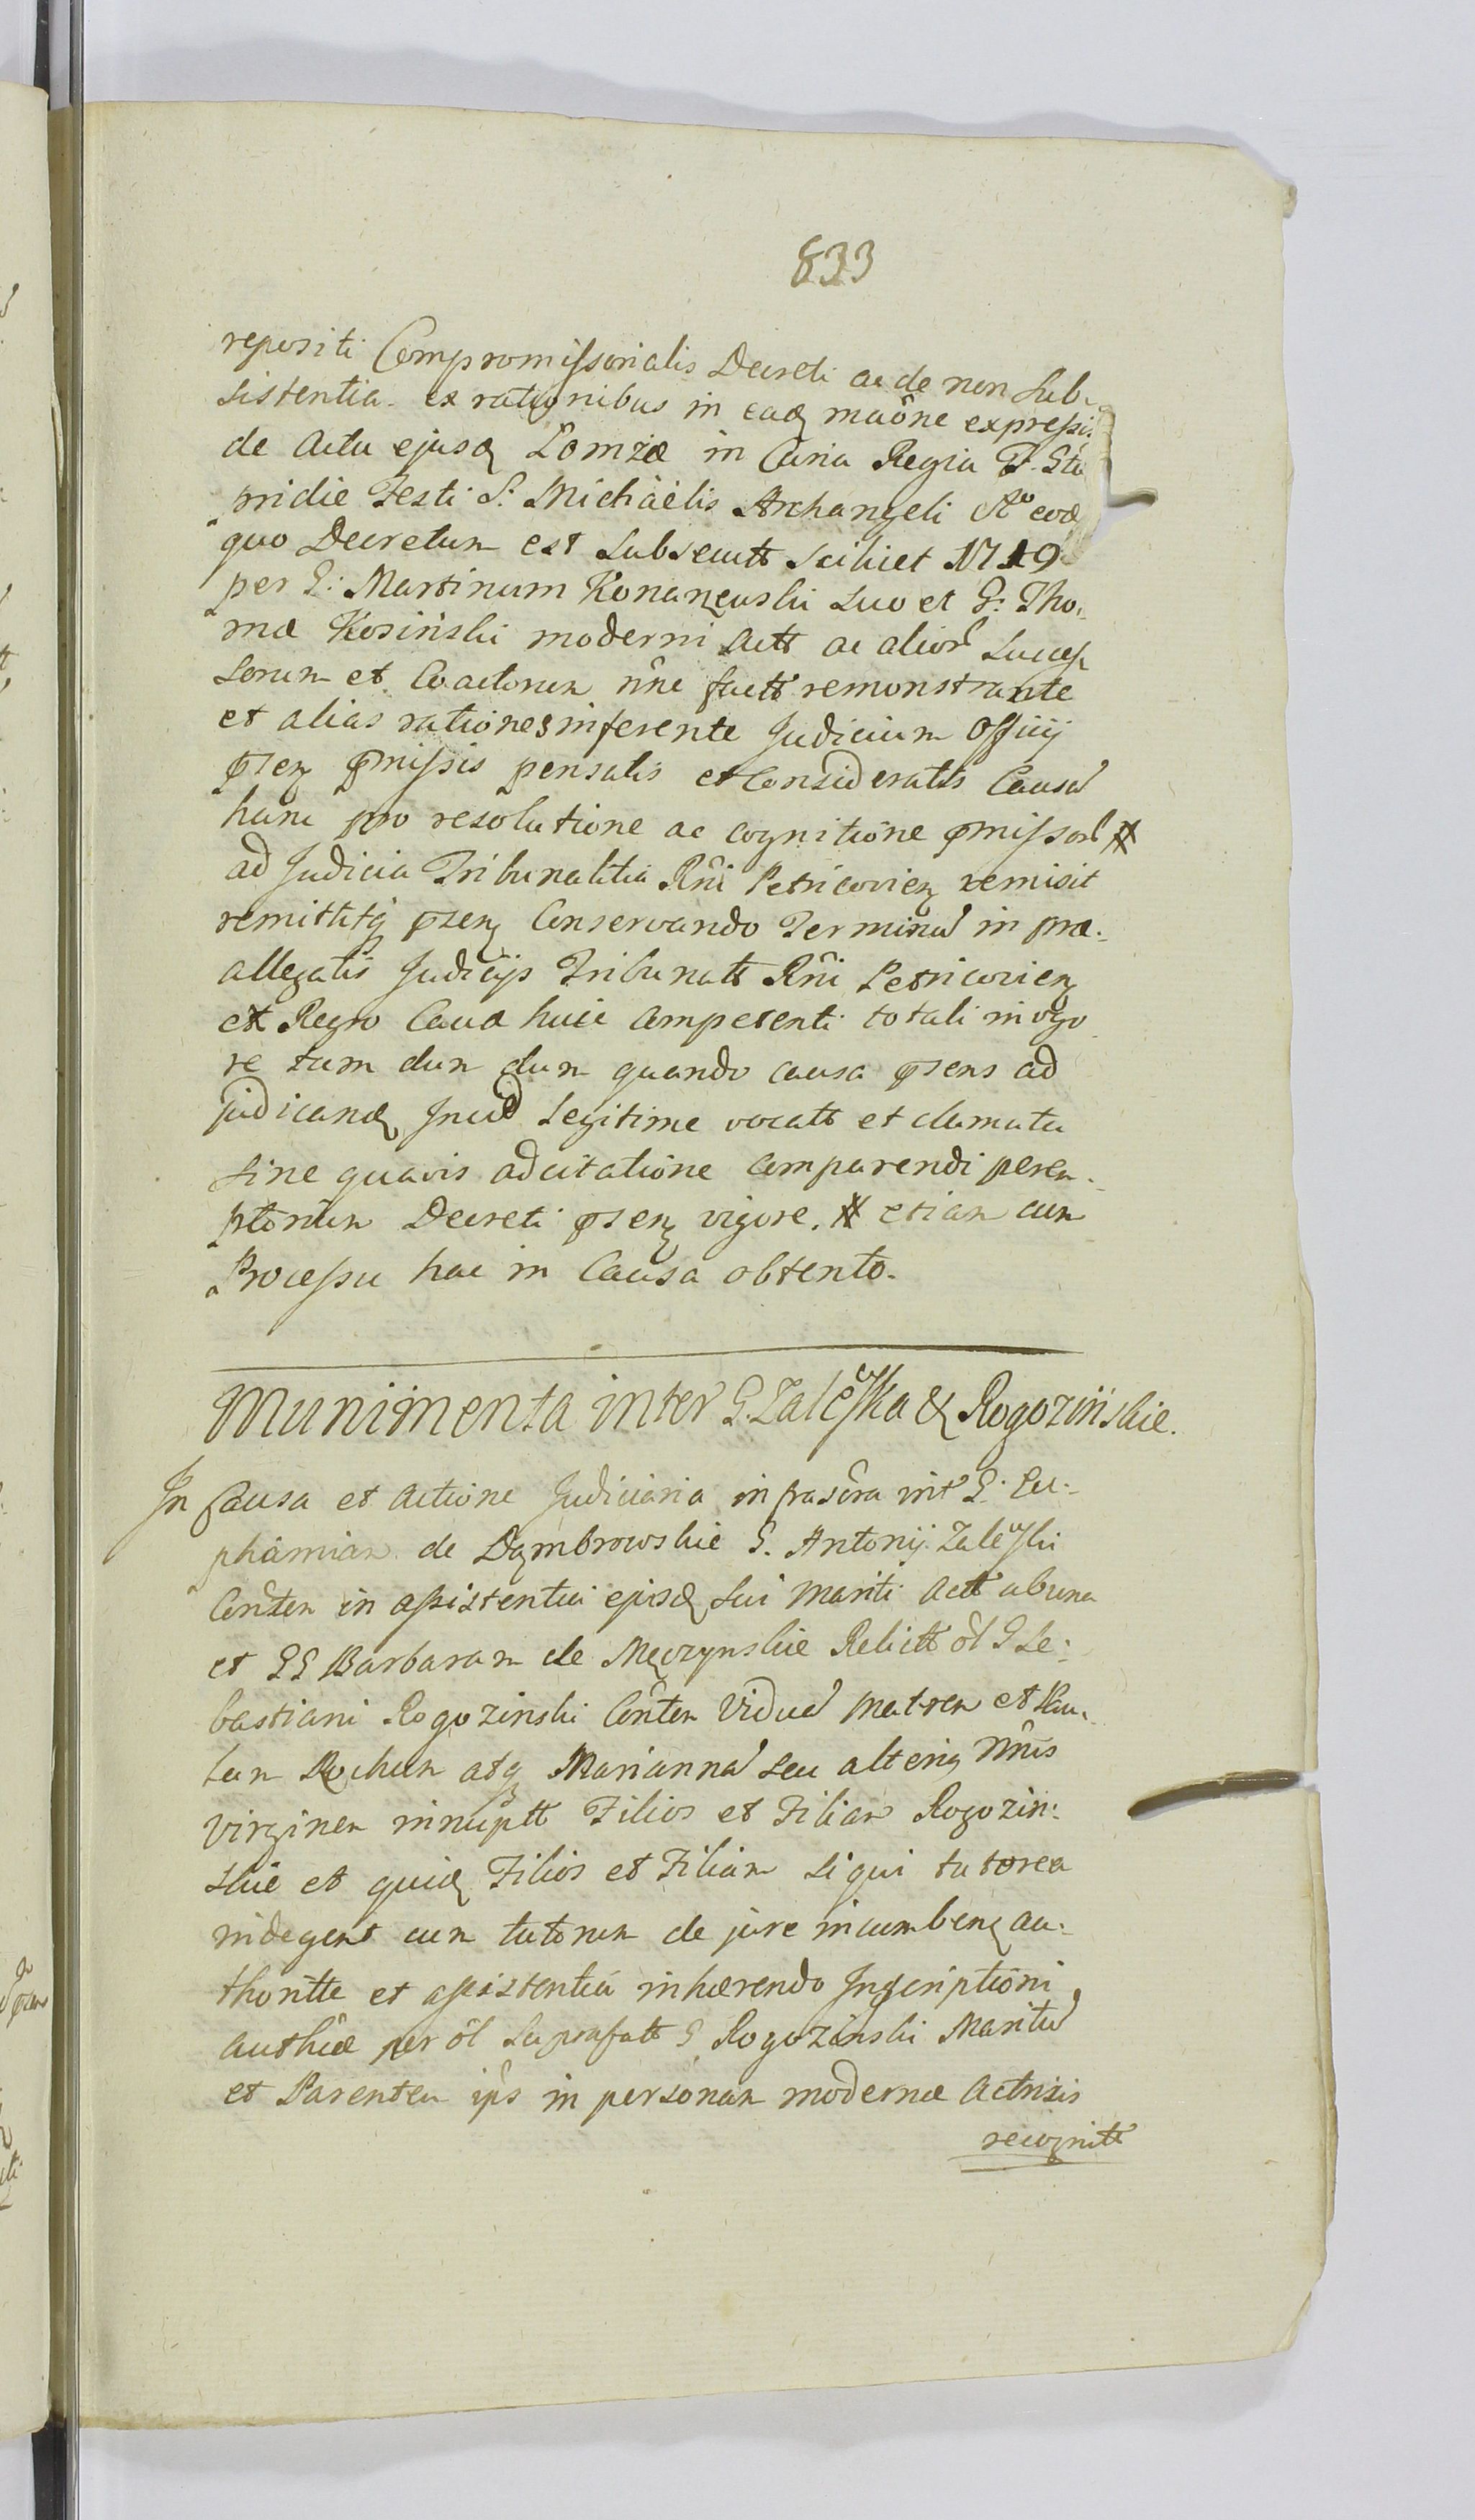 833
repositi Compromissorialis Decreti ac de non Sub-
sistentia ex rationibus in eadq maône expressis
de Actu ejusq Lomzæ in Curia Regia F. Sta
pridie Festi S. Michaëlis Archangeli Aº eoq
quo Decretum est Subsecutt Scilicet 1719
per G: Martinum Konarzewski Suo et G: Tho-
mæ Kosiński moderni Actt ac alior Success
sorum et Coactorum nne factt remonstrante
et alias rationes inferente Judicium Officij
psen pmissis pensatis et Consideratis Causa
hanc pro resolutione ac cognitione pmissor #
ad Judicia Tribunalitia Rñi Petricovien remisit
remittitq psen Conservando Terminu in præ-
allegatis Judicijs Tribunatt Rñi Petricovien
ex Regro Causæ huic Competenti totali in vigo
re tum dum dum quando causa psens ad
judicand Incid Legitime vocatt et clamata
Sine quavis adcitatione comparendi perem-
ptorium Decreti psen vigore. # etiam cum
Processu hac in Causa obtento.
Munimenta inter G. Zaleska & Rogozińskie.
In Causa et Actione Judiciaria infrascra int G. Eu-
phæmian de Dąmbrowskie G. Antonij Zaleski
Conten in assistentia ejusd Sui Mariti Actt ab una
et GG Barbaram de Męczynskie Relictt ôl G Se-
bastiani Rogozinski Conten Vidua Matrem et
Rochum atq Marianna seu alterig nnis
Virginem innuptt Filios et Filiam Rogozin-
skie et quid Filios et Filiam si qui tutorea
indegent cum tutorum de jure incumben au-
thoritte et assistentia inhærendo Inscriptioni
Authcæ per ôl Suprafatt G Rogozinski Maritu
et Parentem ips in personam modernæ Actricis
recognitt